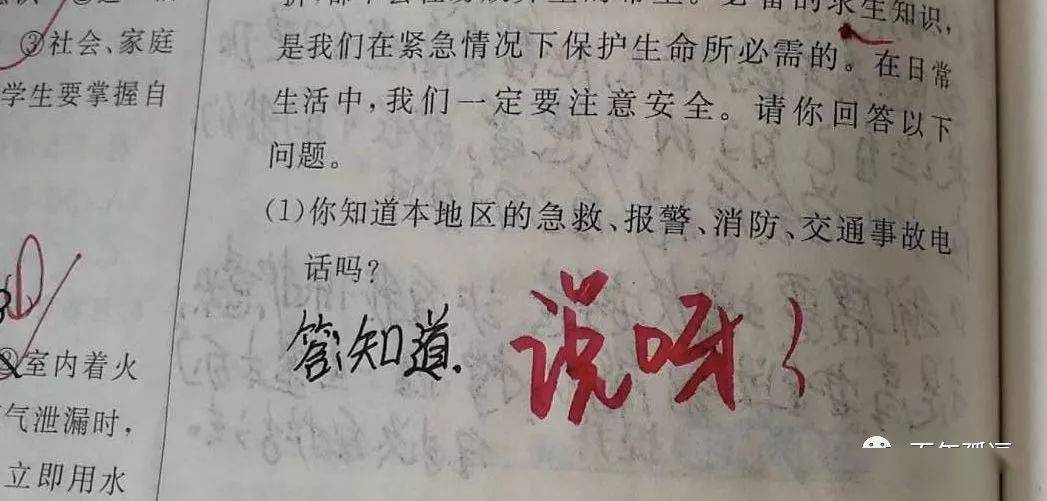 ③社会、家庭
学生要掌握自
②室内着火
气泄漏时，
立即用水
求生知识，
是我们在紧急情况下保护生命所必需的。在日常
生活中，我们一定要注意安全。请你回答以下
问题。
(1)你知道本地区的急救、报警、消防、交通事故电
话吗？
答：知道.
说呀！